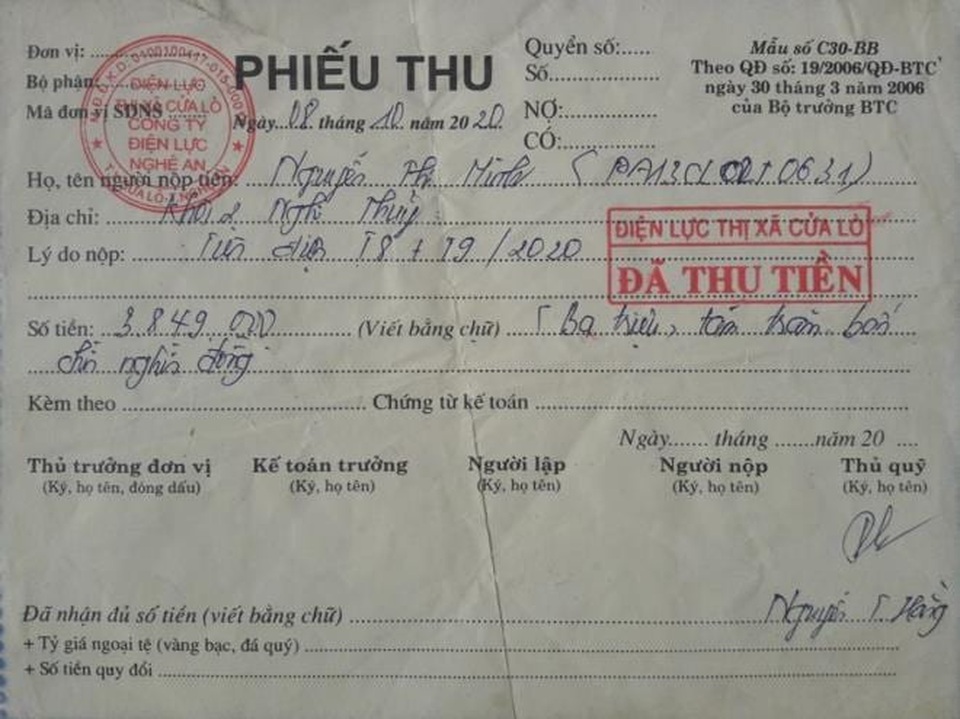 Đơn vị:
Bộ phận:
Mã đơn vị SDNS
Đ.K.K.D: 0400100417-015-0001
ĐIỆN LỰC
THỊ XÃ CỬA LÒ
CÔNG TY
ĐIỆN LỰC
NGHỆ AN
PHIẾU THU
Ngày 08 tháng 10 năm 2020
Quyển số:......
Số
NỢ:
CÓ:
Mẫu số C30-BB
Theo QĐ số: 19/2006/QĐ-BTC
ngày 30 tháng 3 năm 2006
của Bộ trưởng BTC
Họ, tên người nộp tiền: Nguyễn Thị Minh (PA13CL0210631)
Địa chỉ: Khối 2 Nghi Thuỷ
Lý do nộp: Tiền điện T8 + T9/2020
ĐIỆN LỰC THỊ XÃ CỬA LÒ
ĐÃ THU TIỀN
Số tiền: 3.849.000 (Viết bằng chữ) Ba triệu, tám trăm bốn
chín nghìn đồng
Kèm theo Chứng từ kế toán
Ngày....... tháng .......năm 20 ....
Thủ trưởng đơn vị Kế toán trưởng Người lập Người nộp Thủ quỹ
(Ký, họ tên, đóng dấu) (Ký, họ tên) (Ký, họ tên) (Ký, họ tên) (Ký, họ tên)
Nguyễn T. Hằng
Đã nhận đủ số tiền (viết bằng chữ)
+ Tỷ giá ngoại tệ (vàng bạc, đá quý)
+ Số tiền quy đổi